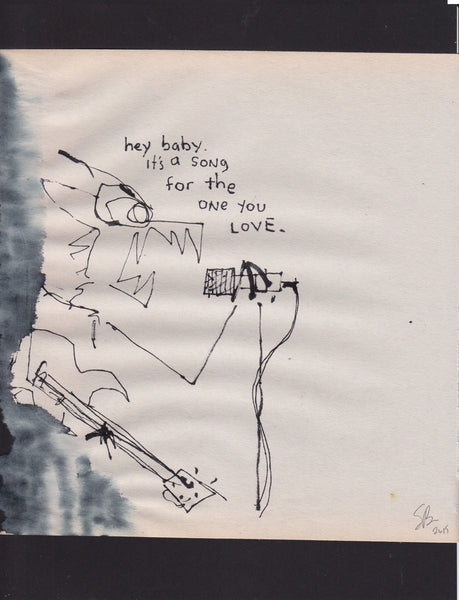 hey baby.
it's a song
for the
one you
love.
SB
2015